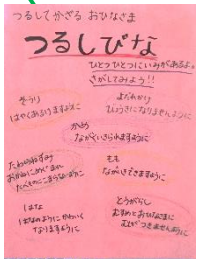 つるして かざる おひなさま
つるしびな
ひとつひとつにいみがあるよ。
さがしてみよう!!
ぞうり
はやくあるけますように
よだれかけ
びょうきになりませんように
かめ
ながくいきられますように
たわらねずみ
おかねにめぐまれ
たべものにこまらないように
もも
ながいきできますように
はな
はなのようにかわいく
なりますように
とうがらし
むすめとおひなさまに
むしがつきませんように